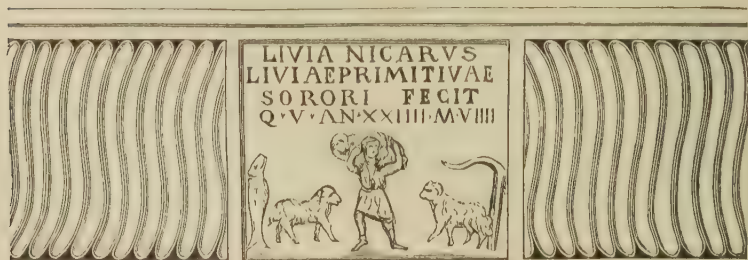 LIVIA NICARVS
LIVIAEPRIMITIVAE
SORORI FECIT
Q·V·ΛN·XXIIII·M·VIIII